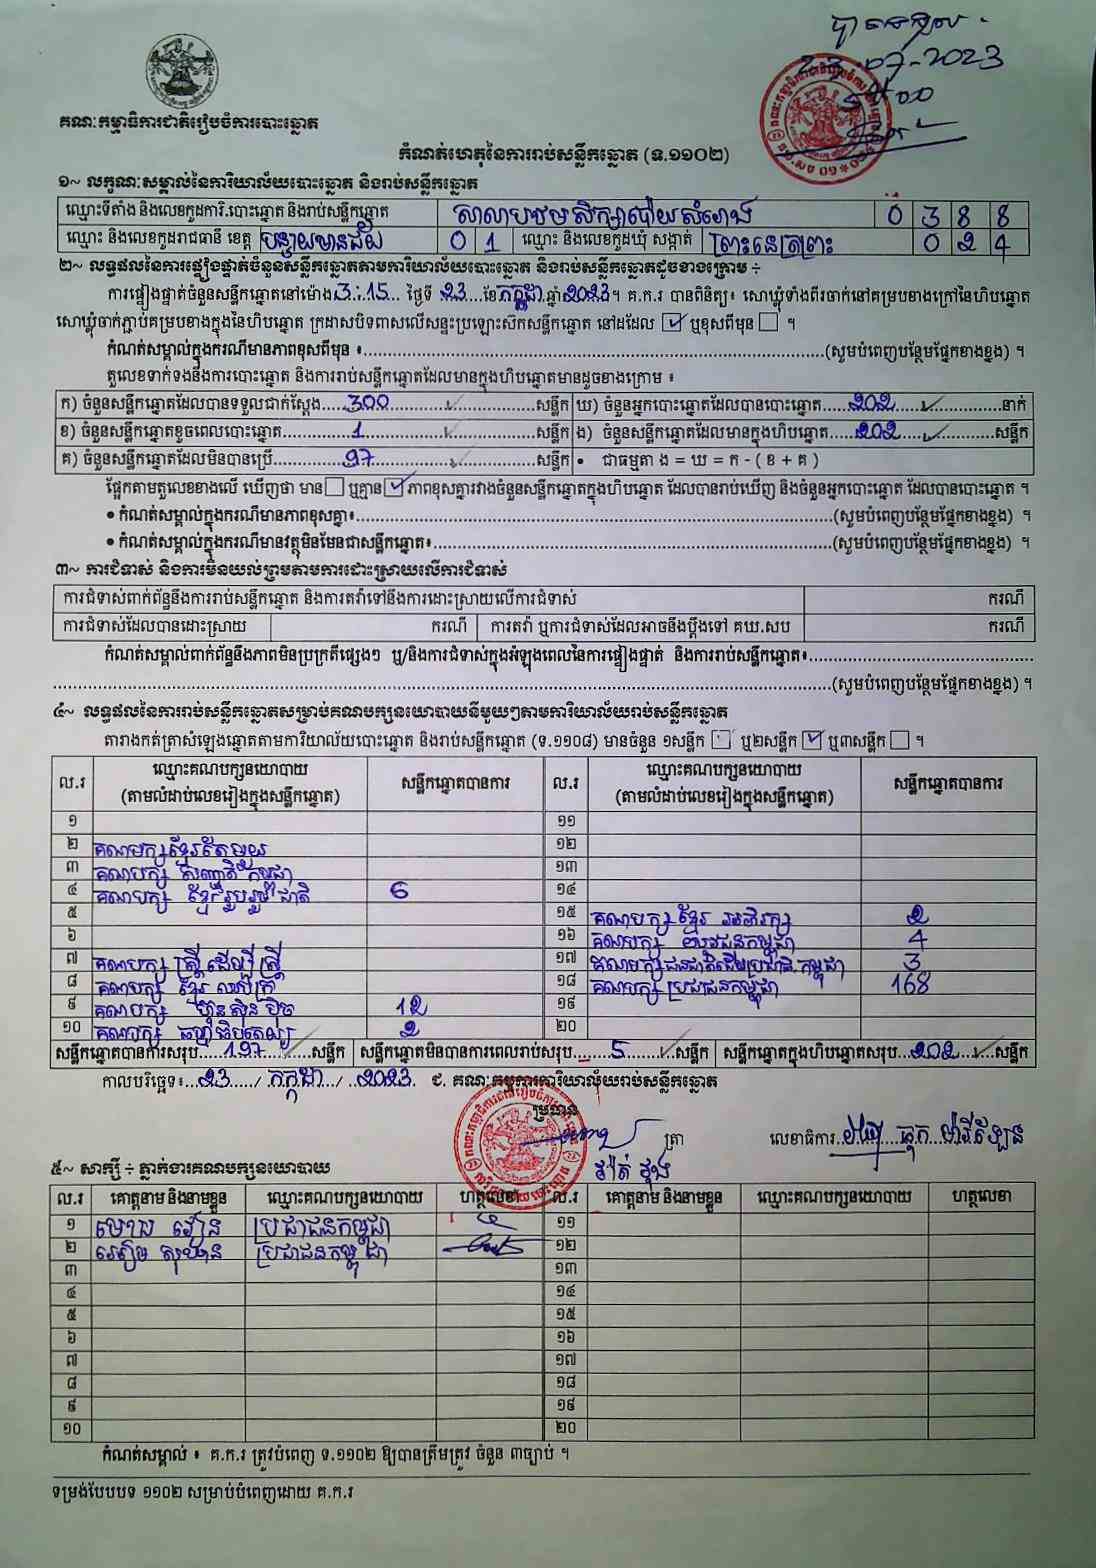 បានទទួល
23.07.2023
គណៈកម្មាធិការជាតិរៀបចំការបោះឆ្នោត
កំណត់ហេតុនៃការរាប់សន្លឹកឆ្នោត (ទ.១១០២)
១~ លក្ខណៈសម្គាល់នៃការិយាល័យបោះឆ្នោត និងរាប់សន្លឹកឆ្នោត
ឈ្មោះទីតាំង និងលេខកូដការិ.បោះឆ្នោត និងរាប់សន្លឹកឆ្នោត សាលាបឋមសិក្សាប៉ោយសំរោង 0 3 8 8
ឈ្មោះ និងលេខកូដរាជធានី ខេត្ត បន្ទាយមានជ័យ 0 1 ឈ្មោះ និងលេខកូដឃុំ សង្កាត់ ព្រះនេត្រព្រះ 0 2 4
២~ លទ្ធផលនៃការផ្ទៀងផ្ទាត់ចំនួនសន្លឹកឆ្នោតតាមការិយាល័យបោះឆ្នោត និងរាប់សន្លឹកឆ្នោតដូចខាងក្រោម ៖
ការផ្ទៀងផ្ទាត់ចំនួនសន្លឹកឆ្នោតនៅម៉ោង 3:15 ថ្ងៃទី 23 ខែ កក្កដា ឆ្នាំ 2023។ គ.ក.រ បានពិនិត្យ៖ សោឃ្លុំទាំងពីរចាក់នៅគម្របខាងក្រៅនៃហិបឆ្នោត
សោឃ្លុំចាក់ភ្ជាប់គម្របខាងក្នុងនៃហិបឆ្នោត ក្រដាសបិទពាសលើសន្ទះប្រឡោះស៊កសន្លឹកឆ្នោត នៅដដែល ☑ ឬខុសពីមុន ☐ ។
កំណត់សម្គាល់ក្នុងករណីមានភាពខុសពីមុន ៖ (សូមបំពេញបន្ថែមផ្នែកខាងខ្នង) ។
តួលេខទាក់ទងនឹងការបោះឆ្នោត និងការរាប់សន្លឹកឆ្នោតដែលមានក្នុងហិបឆ្នោតមានដូចខាងក្រោម ៖
ក) ចំនួនសន្លឹកឆ្នោតដែលបានទទួលជាក់ស្តែង 300 សន្លឹក ឃ) ចំនួនអ្នកបោះឆ្នោតដែលបានបោះឆ្នោត 202 នាក់
ខ) ចំនួនសន្លឹកឆ្នោតខូចពេលបោះឆ្នោត 1 សន្លឹក ង) ចំនួនសន្លឹកឆ្នោតដែលមានក្នុងហិបឆ្នោត 202 សន្លឹក
គ) ចំនួនសន្លឹកឆ្នោតដែលមិនបានប្រើ 97 សន្លឹក • ជាធម្មតា ង = ឃ = ក - ( ខ + គ )
ផ្អែកតាមតួលេខខាងលើ ឃើញថា មាន ☐ ឬគ្មាន ☑ ភាពខុសគ្នារវាងចំនួនសន្លឹកឆ្នោតក្នុងហិបឆ្នោត ដែលបានរាប់ឃើញ និងចំនួនអ្នកបោះឆ្នោត ដែលបានបោះឆ្នោត ។
• កំណត់សម្គាល់ក្នុងករណីមានភាពខុសគ្នា៖ (សូមបំពេញបន្ថែមផ្នែកខាងខ្នង) ។
• កំណត់សម្គាល់ក្នុងករណីមានវត្ថុមិនមែនជាសន្លឹកឆ្នោត៖ (សូមបំពេញបន្ថែមផ្នែកខាងខ្នង) ។
៣~ ការជំទាស់ និងការមិនយល់ព្រមតាមការដោះស្រាយលើការជំទាស់
ការជំទាស់ពាក់ព័ន្ធនឹងការរាប់សន្លឹកឆ្នោត និងការតវ៉ាទៅនឹងការដោះស្រាយលើការជំទាស់ ករណី
ការជំទាស់ដែលបានដោះស្រាយ ករណី ការតវ៉ា ឬការជំទាស់ដែលអាចនឹងប្តឹងទៅ គឃ.សប ករណី
កំណត់សម្គាល់ពាក់ព័ន្ធនឹងភាពមិនប្រក្រតីផ្សេងៗ ឬ/និងការជំទាស់ក្នុងអំឡុងពេលនៃការផ្ទៀងផ្ទាត់ និងការរាប់សន្លឹកឆ្នោត៖
(សូមបំពេញបន្ថែមផ្នែកខាងខ្នង) ។
៤~ លទ្ធផលនៃការរាប់សន្លឹកឆ្នោតសម្រាប់គណបក្សនយោបាយនីមួយៗតាមការិយាល័យរាប់សន្លឹកឆ្នោត
តារាងកត់ត្រាសំឡេងឆ្នោតតាមការិយាល័យបោះឆ្នោត និងរាប់សន្លឹកឆ្នោត (ទ.១១០៨) មានចំនួន ១សន្លឹក ☐ ឬ២សន្លឹក ☑ ឬ៣សន្លឹក ☐ ។
ល.រ ឈ្មោះគណបក្សនយោបាយ (តាមលំដាប់លេខរៀងក្នុងសន្លឹកឆ្នោត) សន្លឹកឆ្នោតបានការ ល.រ ឈ្មោះគណបក្សនយោបាយ (តាមលំដាប់លេខរៀងក្នុងសន្លឹកឆ្នោត) សន្លឹកឆ្នោតបានការ
១ ១១
២ គណបក្សខ្មែរតែមួយ ១២
៣ គណបក្ស សញ្ជាតិកម្ពុជា ១៣
៤ គណបក្ស ខ្មែររួបរួមជាតិ 6 ១៤
៥ ១៥ គណបក្ស ខ្មែរ អភិរក្ស 2
៦ ១៦ គណបក្ស យុវជនកម្ពុជា 4
៧ គណបក្ស ស្ត្រី ដើម្បី ស្ត្រី ១៧ គណបក្សជនជាតិដើមប្រជាធិ.កម្ពុជា 3
៨ គណបក្ស ខ្មែរ ឈប់ក្រ ១៨ គណបក្សប្រជាជនកម្ពុជា 168
៩ គណបក្ស ហ៊្វុនស៊ិនប៉ិច 12 ១៩
១០ គណបក្ស ធម្មាធិបតេយ្យ 2 ២០
សន្លឹកឆ្នោតបានការសរុប 197 សន្លឹក សន្លឹកឆ្នោតមិនបានការពេលរាប់សរុប 5 សន្លឹក សន្លឹកឆ្នោតក្នុងហិបឆ្នោតសរុប 202 សន្លឹក
កាលបរិច្ឆេទ៖ 23 / កក្កដា / 2023 ជ. គណៈកម្មការការិយាល័យរាប់សន្លឹកឆ្នោត
ប្រធាន
ត្រា លេខាធិការ
៥~ សាក្សី ៖ ភ្នាក់ងារគណបក្សនយោបាយ
ល.រ គោត្តនាម និងនាមខ្លួន ឈ្មោះគណបក្សនយោបាយ ហត្ថលេខា ល.រ គោត្តនាម និងនាមខ្លួន ឈ្មោះគណបក្សនយោបាយ ហត្ថលេខា
១ ប្រជាជនកម្ពុជា ១១
២ ប្រជាជនកម្ពុជា ១២
៣ ១៣
៤ ១៤
៥ ១៥
៦ ១៦
៧ ១៧
៨ ១៨
៩ ១៩
១០ ២០
កំណត់សម្គាល់ ៖ គ.ក.រ ត្រូវបំពេញ ទ.១១០២ ឱ្យបានត្រឹមត្រូវ ចំនួន ៣ច្បាប់ ។
ទម្រង់បែបបទ ១១០២ សម្រាប់បំពេញដោយ គ.ក.រ